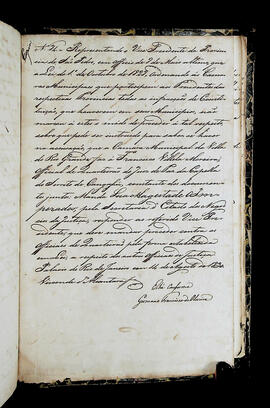 Nº 26. Representando o Vice Presidente da Provin
cia de São Pedro, em officio de 7 de Maio ultimo, que
a Lei do 1º de Outubro de 1828, ordenando ás Cama
ras Municipaes, que participem ao Presidente das
respectivas Provincias todas as infracções da Consti
tuição, que houverem em seus Municipios, não
marcou a este o modo de proceder a tal respeito
sobre que pede ser instruido para saber se haver
na accusação, que a Camara Municipal da Villa
do Rio Grande faz a Francisco
Official de Quarteirão do Juiz de Paz da Capella
do Serrito de Canguçú, constante dos documentos
juntos. Manda Sua Magestade o Im
perador, pela Secretaria d'Estado dos Nego
cios da Justiça, responder ao referido Vice Pre
sidente, que deve mandar proceder contra os
officiaes de Quarteirão pela forma
a respeito de outros officiaes de Justiça
Palacio do Rio de Janeiro em 14 de Agosto de 1830.
Visconde d'Alcantara
Está conforme